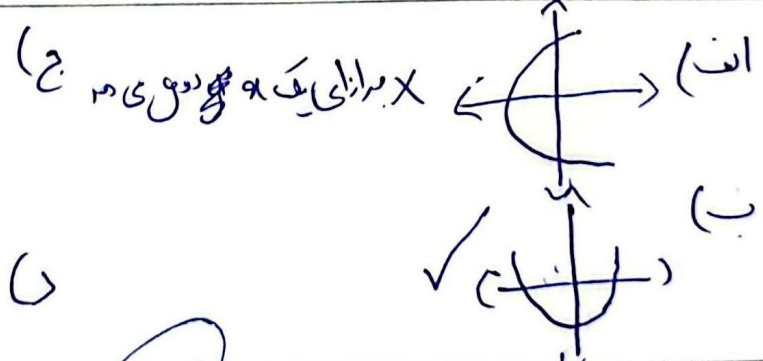 الف)
X به ازای یک x دو y می دهد
ج)
ب)
✓
د)